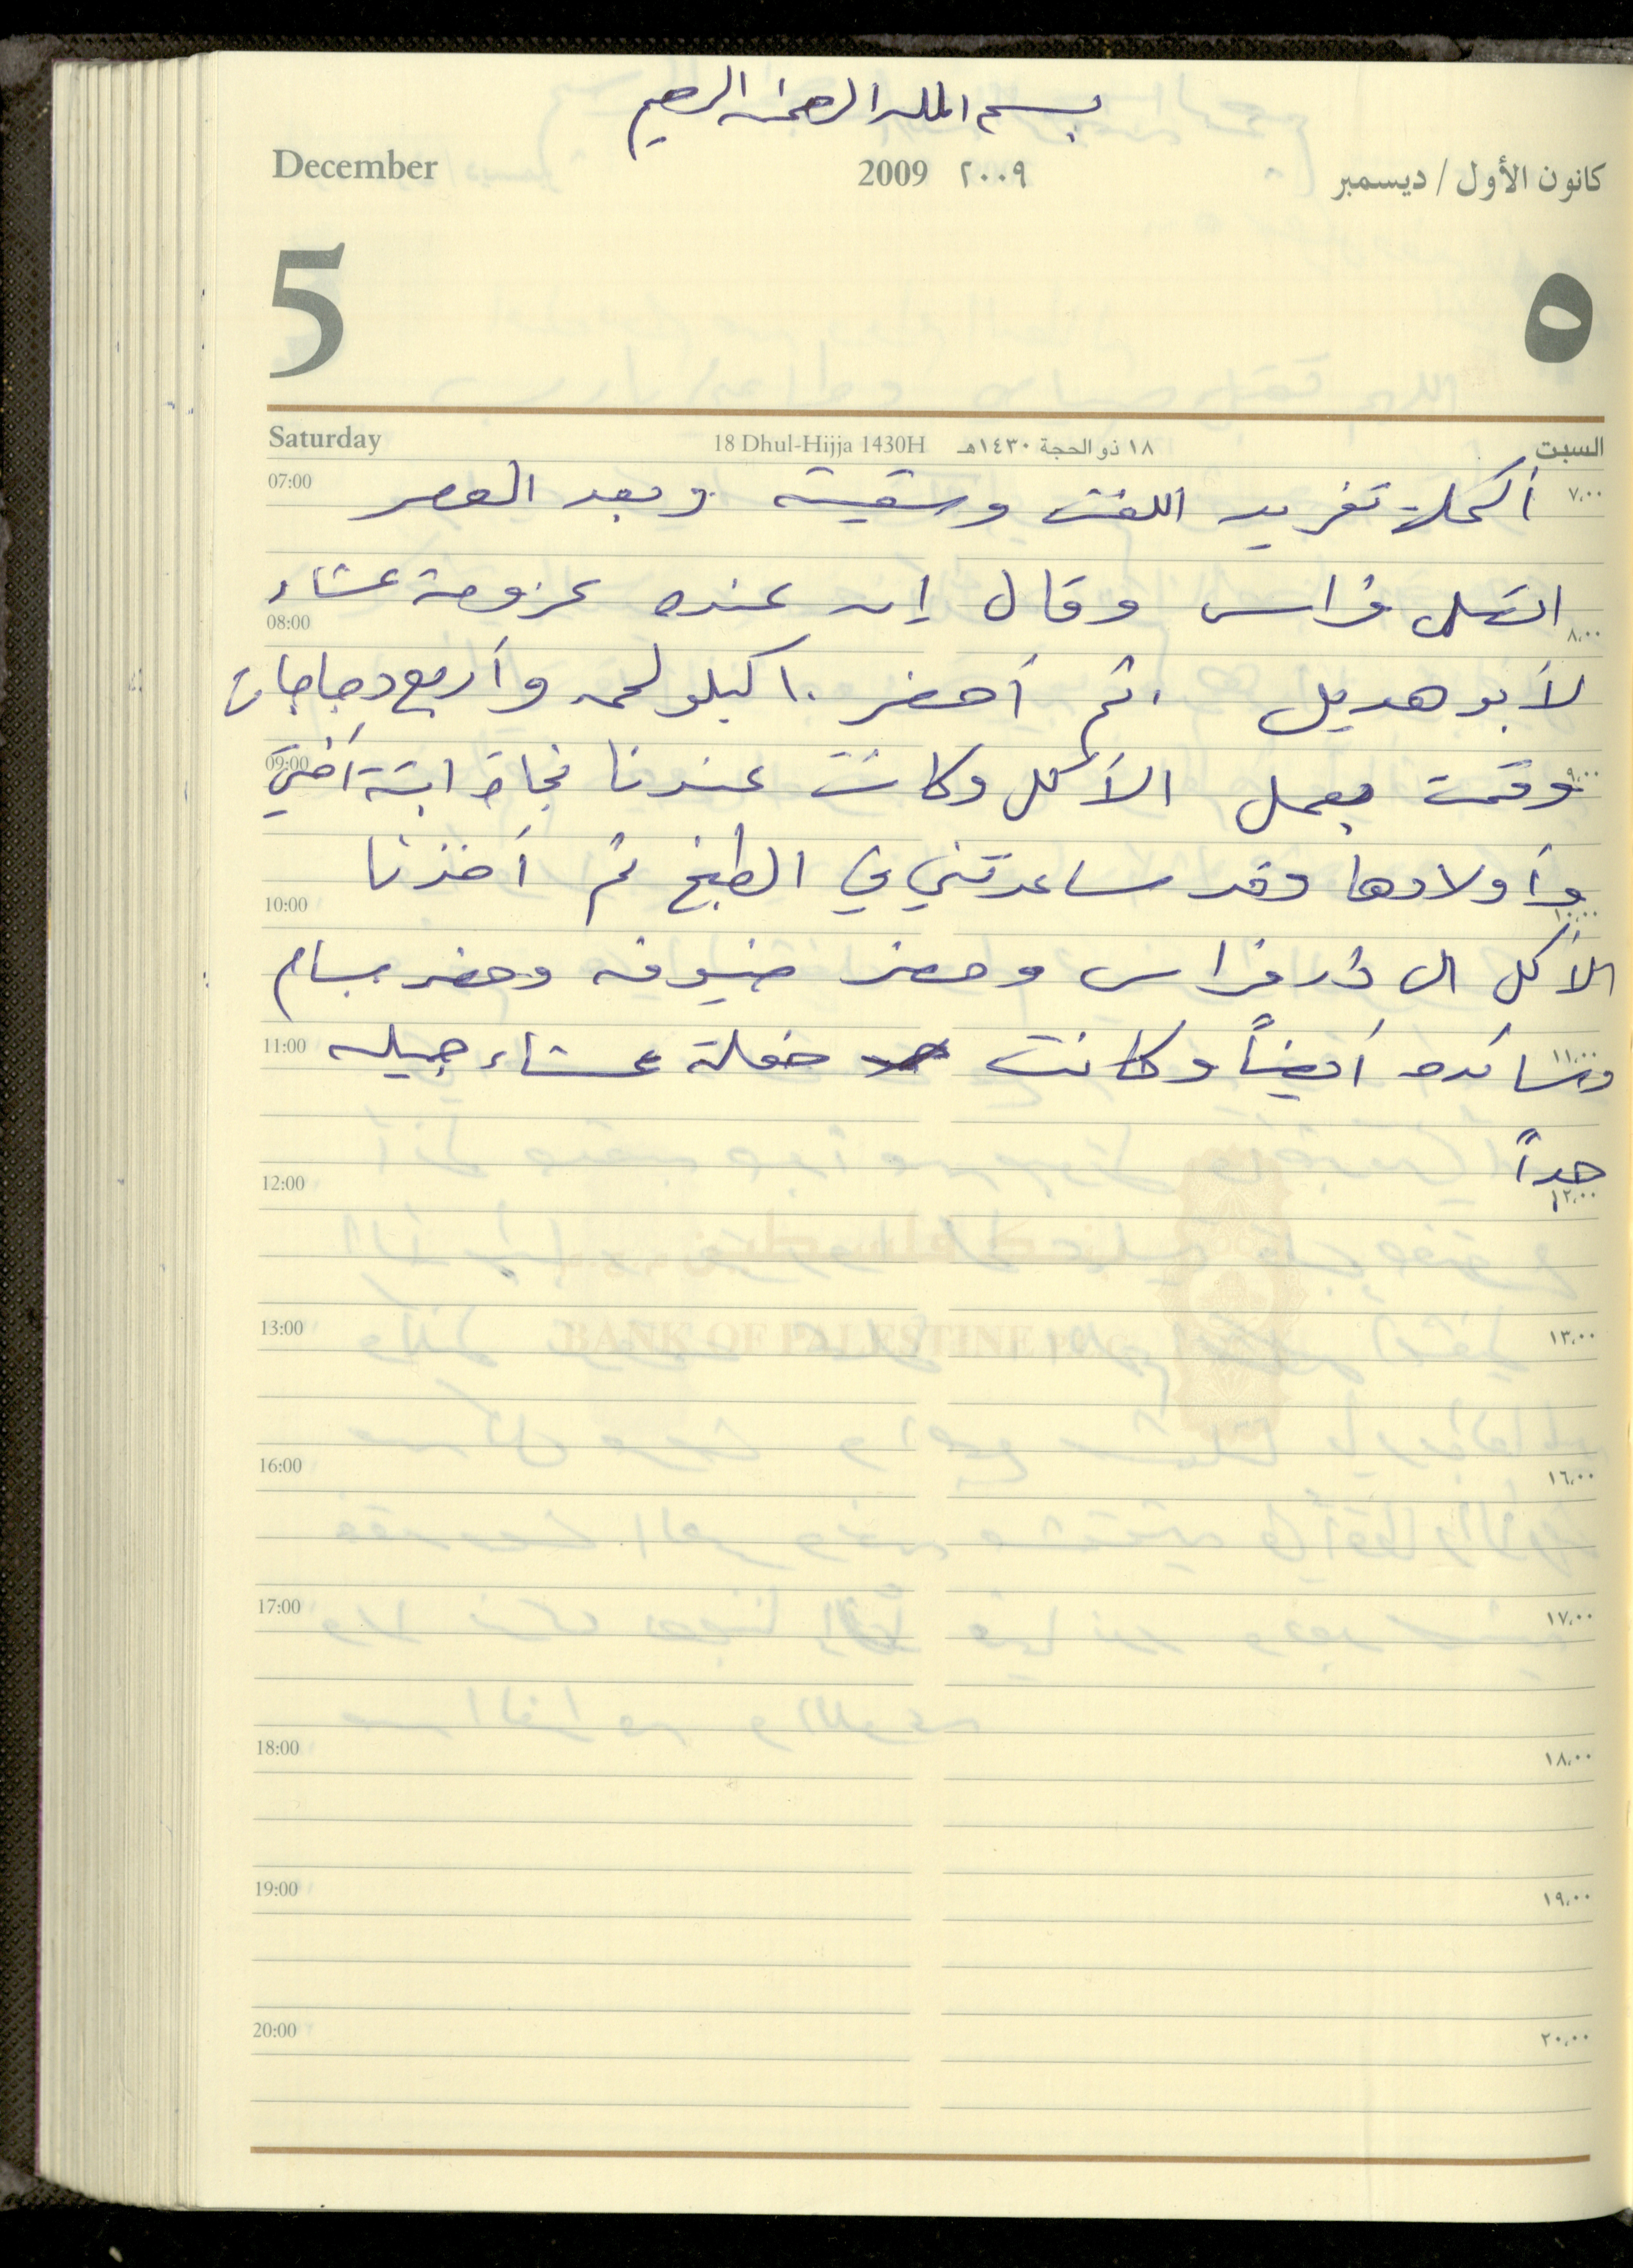 بسم الله الرحمن الرحيم
December 2009 ٢٠٠٩ كانون الأول / ديسمبر
5 ٥
Saturday 18 Dhul-Hijja 1430H ١٨ ذو الحجة ١٤٣٠هـ السبت
07:00 أكملت تفريد اللفت وسقيته وبعد العصر ٧،٠٠
اتصل فراس وقال إن عنده عزومة عشاء
08:00 ٨،٠٠
لأبو هديل . ثم أحضر ١٠ كيلو لحمه وأربع دجاجات
09:00 وقمت بعمل الأكل وكانت عندنا نجاة ابنة أختي ٩،٠٠
وأولادها وقد ساعدتني في الطبخ ثم أخذنا
10:00 ١٠،٠٠
الأكل الى دار فراس وحضر ضيوفه وحضر بسام
11:00 أيضاً وكانت حفلة عشاء جميله ١١،٠٠
جداً
12:00 ١٢،٠٠
بنك فلسطين
BANK OF PALESTINE
13:00 ١٣،٠٠
16:00 ١٦،٠٠
17:00 ١٧،٠٠
18:00 ١٨،٠٠
19:00 ١٩،٠٠
20:00 ٢٠،٠٠